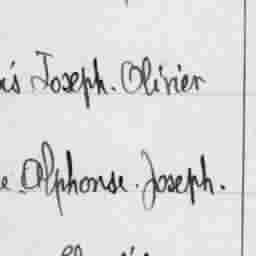 Joseph. Olivier
Alphonse. Joseph.